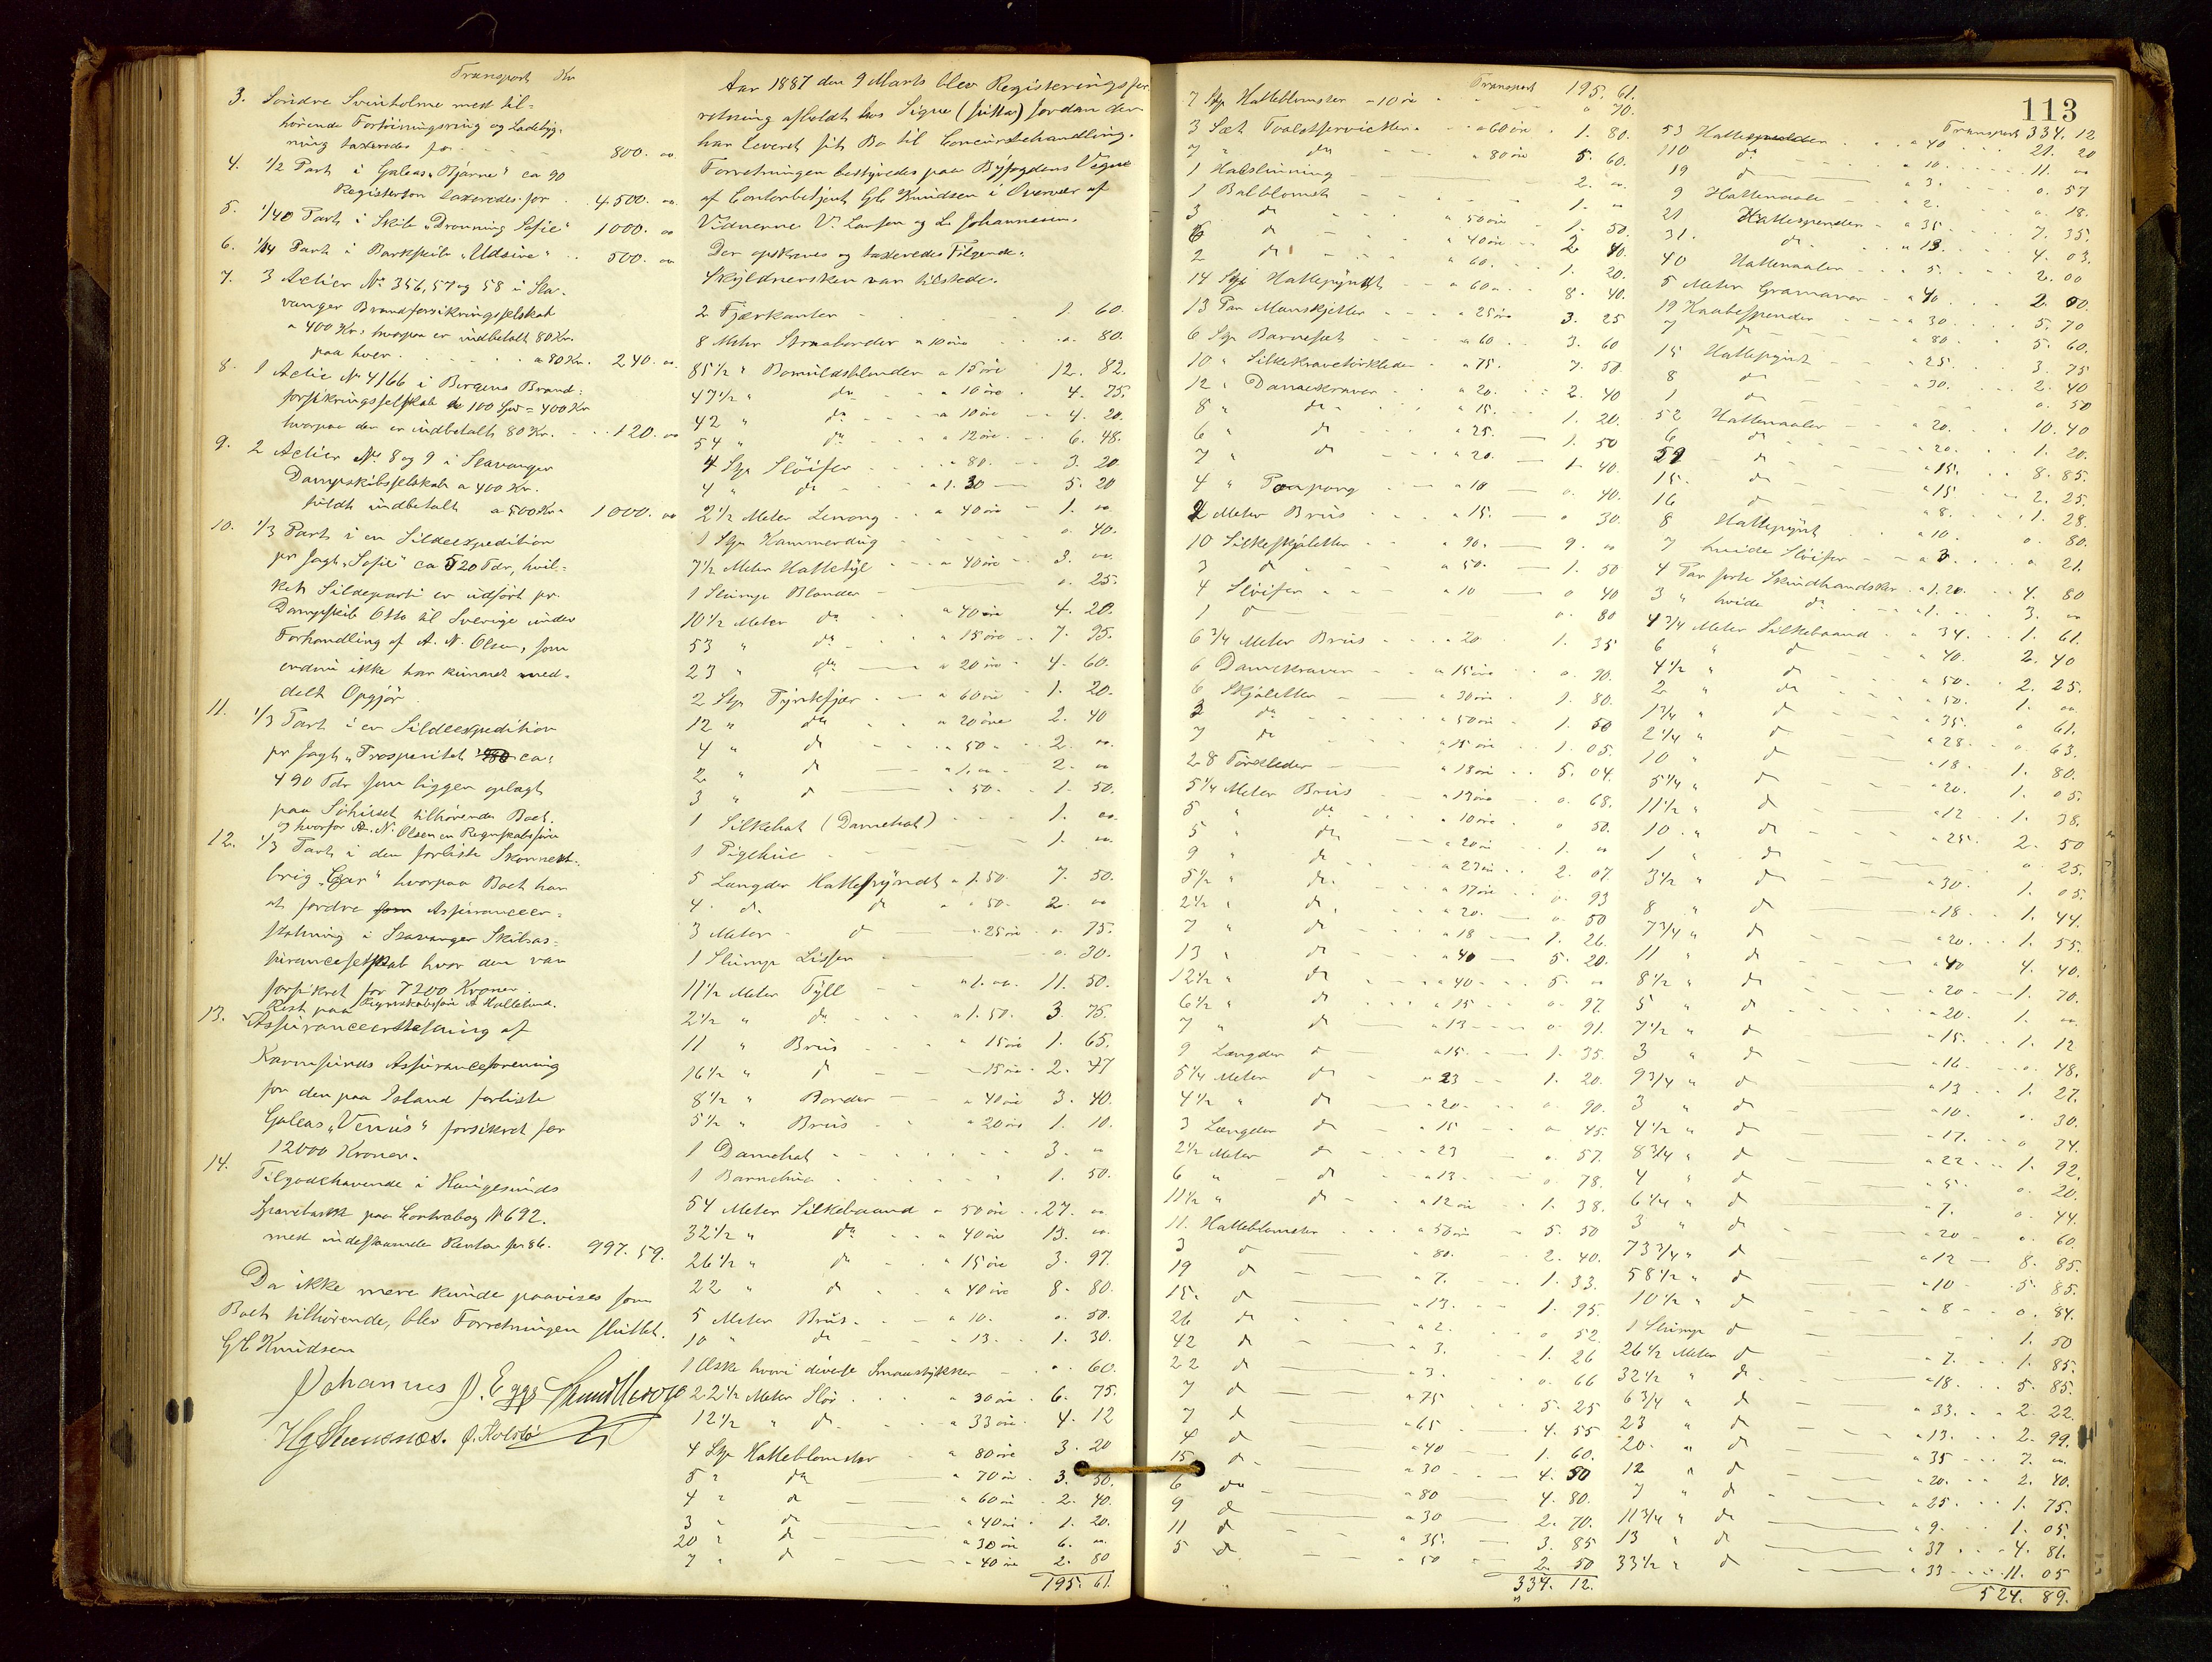 Transport Kr
3. Söndre Svinholme med til-
hörende Fortöiningsring og Ladebÿg-
ning taxeredes for - - - 800. oo
4. 1/2 Part i Galeas "Bjarne" ca 90
Registerton taxeredes for . 4500. oo
5. 1/40 Part i Skib "Dronning Sofie" 1000. oo
6. 1/24 Part i Barkskib "Udsire" .. 500. oo
7. 3 Actier No 356, 57 og 58 i Sta-
vanger Brandforsikringsselskab
a 400 Kr, hvorpaa er indbetalt 80 Kr.
paa hver . . . . . a 80 Kr. 240. oo
8. 1 Actie No 4166 i Bergens Brand-
forsikringsselskab de 100 Spd = 400 Kr
hvorpaa der er indbetalt 80 Kr. - - 120. oo
9. 2 Actier No 8 og 9 i Stavanger
Dampskibsselskab a 400 Kr.
fuldt indbetalt a 500 Kr. 1000. oo
10. 1/3 Part i en Sildeexpedition
pr Jagt "Sofie" ca 520 Tdr, hvil-
ket Sildeparti er udfört pr.
Dampskib Otto til Sverige under
Forhandling af A. N. Olsen, som
endnu ikke har kunnet med-
delt Opgjör
11. 1/3 Part i en Sildeexpedition
pr Jagt "Prosperitet" ca:
490 Tdr som ligger oplagt
paa Söhuset tilhörende Boet.
og hvorfor A. N. Olsen er Regnskabsförer
12. 1/3 Part i den forliste Skonnert-
brig "Czar" hvorpaa Boet har
at fordre som Assuranceer-
statning i Stavanger Skibsas-
suranceselskab hvor den var
forsikret for 7200 Kroner.
Rest paa Regnskabsförer A Hallelund.
13. Assuranceerstatning af
Karmsunds Assuranceforening
for den paa Island forliste
Galeas "Venus" forsikret for
12000 Kroner.
14. Tilgodehavende i Haugesunds
Sparebank paa Contrabog No 692.
med indestaaende Renter for 86. 997. 59.
Da ikke mere kunde paavises som
Boet tilhörende, blev Forretningen sluttet.
G C Knudsen
Johannes J. Egge
Aar 1887 den 9 Marts blev Registeringsfor-
retning afholdt hos Signe (Jutta) Jordan der
har leveret sit Bo til Concursbehandling.
Forretningen bestÿredes paa Bÿfogdens Vegne
af Contorbetjent G C Knudsen i Overvær af
Vidnerne V. Larsen og L. Johannesen.
Der opskreves og taxeredes Fölgende:
Skÿldnersken var tilstede.
2 Fjærkanter - - - 1. 60.
8 Meter Straaborder a 10 öre . o. 80.
85 1/2 " Bomuldsblonder a 15 öre 12. 82.
47 1/2 " do - a 10 öre . 4. 75.
42 " do - - a 10 öre - 4. 20.
54 " do - - a 12 öre . 6. 48.
4 Stk Slöifer - - - a 80. - - 3. 20.
4 " do - - a 1. 30 - 5. 20
2 1/2 Meter Lenong - - a 40 öre - 1. oo
1 Stk Kammerdug - - - - o. 40.
7 1/2 Meter Hattetÿl - - a 40 öre - 3. oo.
1 Stump Blonder - - - o. 25.
10 1/2 Meter do - a 40 öre 4. 20.
53 " do - - a 15 öre - 7. 95.
23 " do - a 20 öre - 4. 60.
2 Stk Pÿntefjær - - a 60 öre - 1. 20.
12 " do . . a 20 öre 2. 40
4 " do - - a 50 - 2. oo.
2 " do - a 1. oo - 2. oo
3 " do - a 50. - 1. 50.
1 Silkehat (Damehat) - - - 1. oo.
1 Pigehue - - - - 1. oo.
5 Længder Hattepÿndt a 1. 50. 7. 50.
4. do do a . 50. 2. oo
3 Meter - do - a 25 öre . o. 75.
1 Stump Lidser - - - o. 30.
11 1/2 Meter Tÿll - - a 1. oo. 11. 50.
2 1/2 " do - - a 1. 50. 3. 75.
11 " Brüs - - a 15 öre 1. 65.
16 1/2 " do - - a 15 öre . 2. 47
8 1/2 " Border - - a 40 öre 3. 40.
5 1/2 " Brüs - - a 20 öre 1. 10.
1 Damehat - - - - - 3. oo
1 Barnehue - - - - 1. 50.
54 Meter Silkebaand a 50 öre . 27. oo
32 1/2 " do - a 40 öre 13. oo.
26 1/2 " do - a 15 öre 3. 97.
22 " do . a 40 öre 8. 80.
5 Meter Brüs - - a 10. - o. 50.
10 " do - - a 13. - 1. 30.
1 Æske hvori diverse Smaastÿkker - o. 60.
22 1/2 Meter Slör - - a 30 öre . 6. 75.
12 1/2 " do - - a 33 öre . 4. 12
4 Stk Hatteblomster - a 80 öre 3. 20
5 " do - a 70 öre . 3. 50.
4 " do - a 60 öre . 2. 40.
3 " do - a 40 öre . 1. 20.
20 " do - a 30 öre 6. oo.
7 " do - - a 40 öre 2. 80
195. 61.
Transport 195. 61.
7 Stk Hatteblomster a 10 öre - o 70.
3 Sæt Toiletservietter - - a 60 öre . 1. 80.
7 " do - a 80 öre 5. 60.
1 Halslinning - - - 2. oo.
1 Balblomst - - - 1. oo
3 do - - a 50 öre - 1. 50.
6 do - - - a 40 öre - 2. 40.
2 do - - a 60. - - 1. 20.
14 Stk Hattepÿndt - a 60. - 8. 40.
13 Par Manskjetter - - - a 25 öre 3. 25
6 Stk Barnesæt - - - a 60 - . 3. 60
10 " Silkekravetörklæder . a 75. 7. 50.
12 " Damekraver - - a 20. - 2. 40
8 " do - - a 15. - 1. 20.
6 " do - - a 25. - 1. 50
7 " do - a 20. - 1. 40.
4 " Pompong - - a 10 - o. 40.
2 Meter Brüs - - - a 15. - o 30.
10 Silkeskjöletter - - a 90. - 9. oo
3 do - - a 50. - 1. 50
4 Slöifer - - - a 10 - o 40
1 do - - - o. 80
6 3/4 Meter Brüs - - - a 20 1. 35
6 Damekraver - - a 15 öre o. 90.
6 Skjöletter - - a 30 öre . 1. 80.
3 do - - a 50 öre . 1. 50
7 do - - a 15 öre . 1. 05.
28 Forklæder - - a 18 öre . . 5. 04.
5 1/4 Meter Brüs - - a 13 öre . o. 68.
5 " do - - a 10 öre . o 50.
5 " do - - a 20 öre 1. oo
9 " do - - a 23 öre . . 2. 07
5 1/2 " do - - a 17 öre . o. 93
2 1/2 " do - - a 20. - o. 50
7 " do - - a 18 - 1. 26.
13 " do - a 40 - 5. 20.
12 1/2 " do - a 40 - 5. oo
6 1/2 " do - a 15 - o. 97.
7 " do - a 13 - o. 91.
9 Længder do - a 15. - 1. 35.
5 1/4 Meter do - a 23 - 1. 20.
4 1/2 " do - a 20. - o. 90.
3 Længder do - a 15 - o 45.
2 1/2 Meter do - a 23 o. 57.
6 " do - a 13. - o. 78.
11 1/2 " do - a 12 öre . 1. 38.
11. Hatteblomster - - a 50 öre - 5. 50
3 do - a 80. - 2. 40.
19 do - a 7. - 1. 33.
15. do - a 13. - 1. 95.
26 do - a 2. - o. 52.
42 do - a 3. - 1. 26
22 do - a 3. - o. 66
7 do - a 75 - 5. 25
7 do - a 65 - 4. 55
4 do - a 40 1. 60.
15 do - a 30 - 4. 50
6 do - a 80 4. 80.
9 do - a 30 2. 70.
11 do - a 35. 3. 85
5 do - a 50 2. 50
334. 12.
113
Transport 334. 12
53 - a 40 - 21. 20
110 do - a 10. - 11. oo
19 do - a 3. - o. 57
9 Hattenaale - a 2. - o. 18.
21 Hattespender - a 35. - 7. 35.
31. do - a 13. - 4. 03.
40 Hattenaaler - - a 5. - 2. 00
5 Meter Gramaver - a 40 - 2. 00.
19 Kaabespender - a 30. - 5. 70
7 do - a 80 - 5. 60.
15 Hattepÿnt - a 25. - 3. 75
8 do - a 30. - 2. 40
1 do - - o. 50
52 Hattenaaler - a 20. - 10. 40
6 do - a 20. - 1. 20.
59 do - a 15. - 8. 85.
15. do - a 15 - 2. 25.
16 do - a 8. - 1. 28.
8 Hattepÿnt - a 10. - o. 80.
7 hvide Slöifer - a 3. - o 21.
4 Par sorte Skindhandsker a 1. 20. - 4. 80
3 " hvide do - a 1. - 3. oo
4 3/4 Meter Silkebaand - a 34. - 1. 61.
6 " do - a 40. 2. 40
4 1/2 " do - a 50. - 2. 25.
2 " do - a 50. 1. oo
1 3/4 " do - a 35. - o 61.
2 1/4 " do - a 28. - o. 63.
10 " do - a 18. - 1. 80.
5 1/4 " do - a 20. 1. 05.
11 1/2 " do - a 12 - 1. 38.
10. " do - a 25. 2. 50
1 " do - - o 25.
3 1/2 " do - a 30. 1. 05.
8 " do - a 18. - 1. 44.
7 3/4 " do - a 20. - 1. 55.
11 " do - a 40 4. 40.
8 1/2 " do - a 20 - 1. 70.
5 " do - a 20. 1. oo.
7 1/2 " do - a 15. - 1. 12
3 " do - a 16. - o. 48.
9 3/4 " do - a 13 - 1. 27.
3 " do - a 10. - o. 30.
4 1/2 " do - a 17. - o 74.
8 3/4 " do - a 22 - 1. 92.
4 " do - a 5. - o. 20.
6 1/4 " do - a 7. o. 44.
3 " do - a 20 - o. 60.
73 3/4 " do - a 12 - 8. 85.
58 1/2 " do - a 10 - 5. 85.
10 1/2 " do - a 8 - o. 84.
1 Stump do - - 1. 50
26 1/2 Meter do - a 7. - 1. 85.
32 1/2 " do - a 18. - 5. 85.
6 3/4 " do - a 33. - 2. 22.
23 " do - a 13. - 2. 99.
20. " do - a 35 - 7. oo.
12 " do - a 20. - 2. 40.
7 " do - a 25 - 1. 75.
11 3/4 " do - a 9. - 1. 05.
13 " do - a 37 - 4. 81.
33 1/2 " do - a 33 - 11. 05
524. 89.